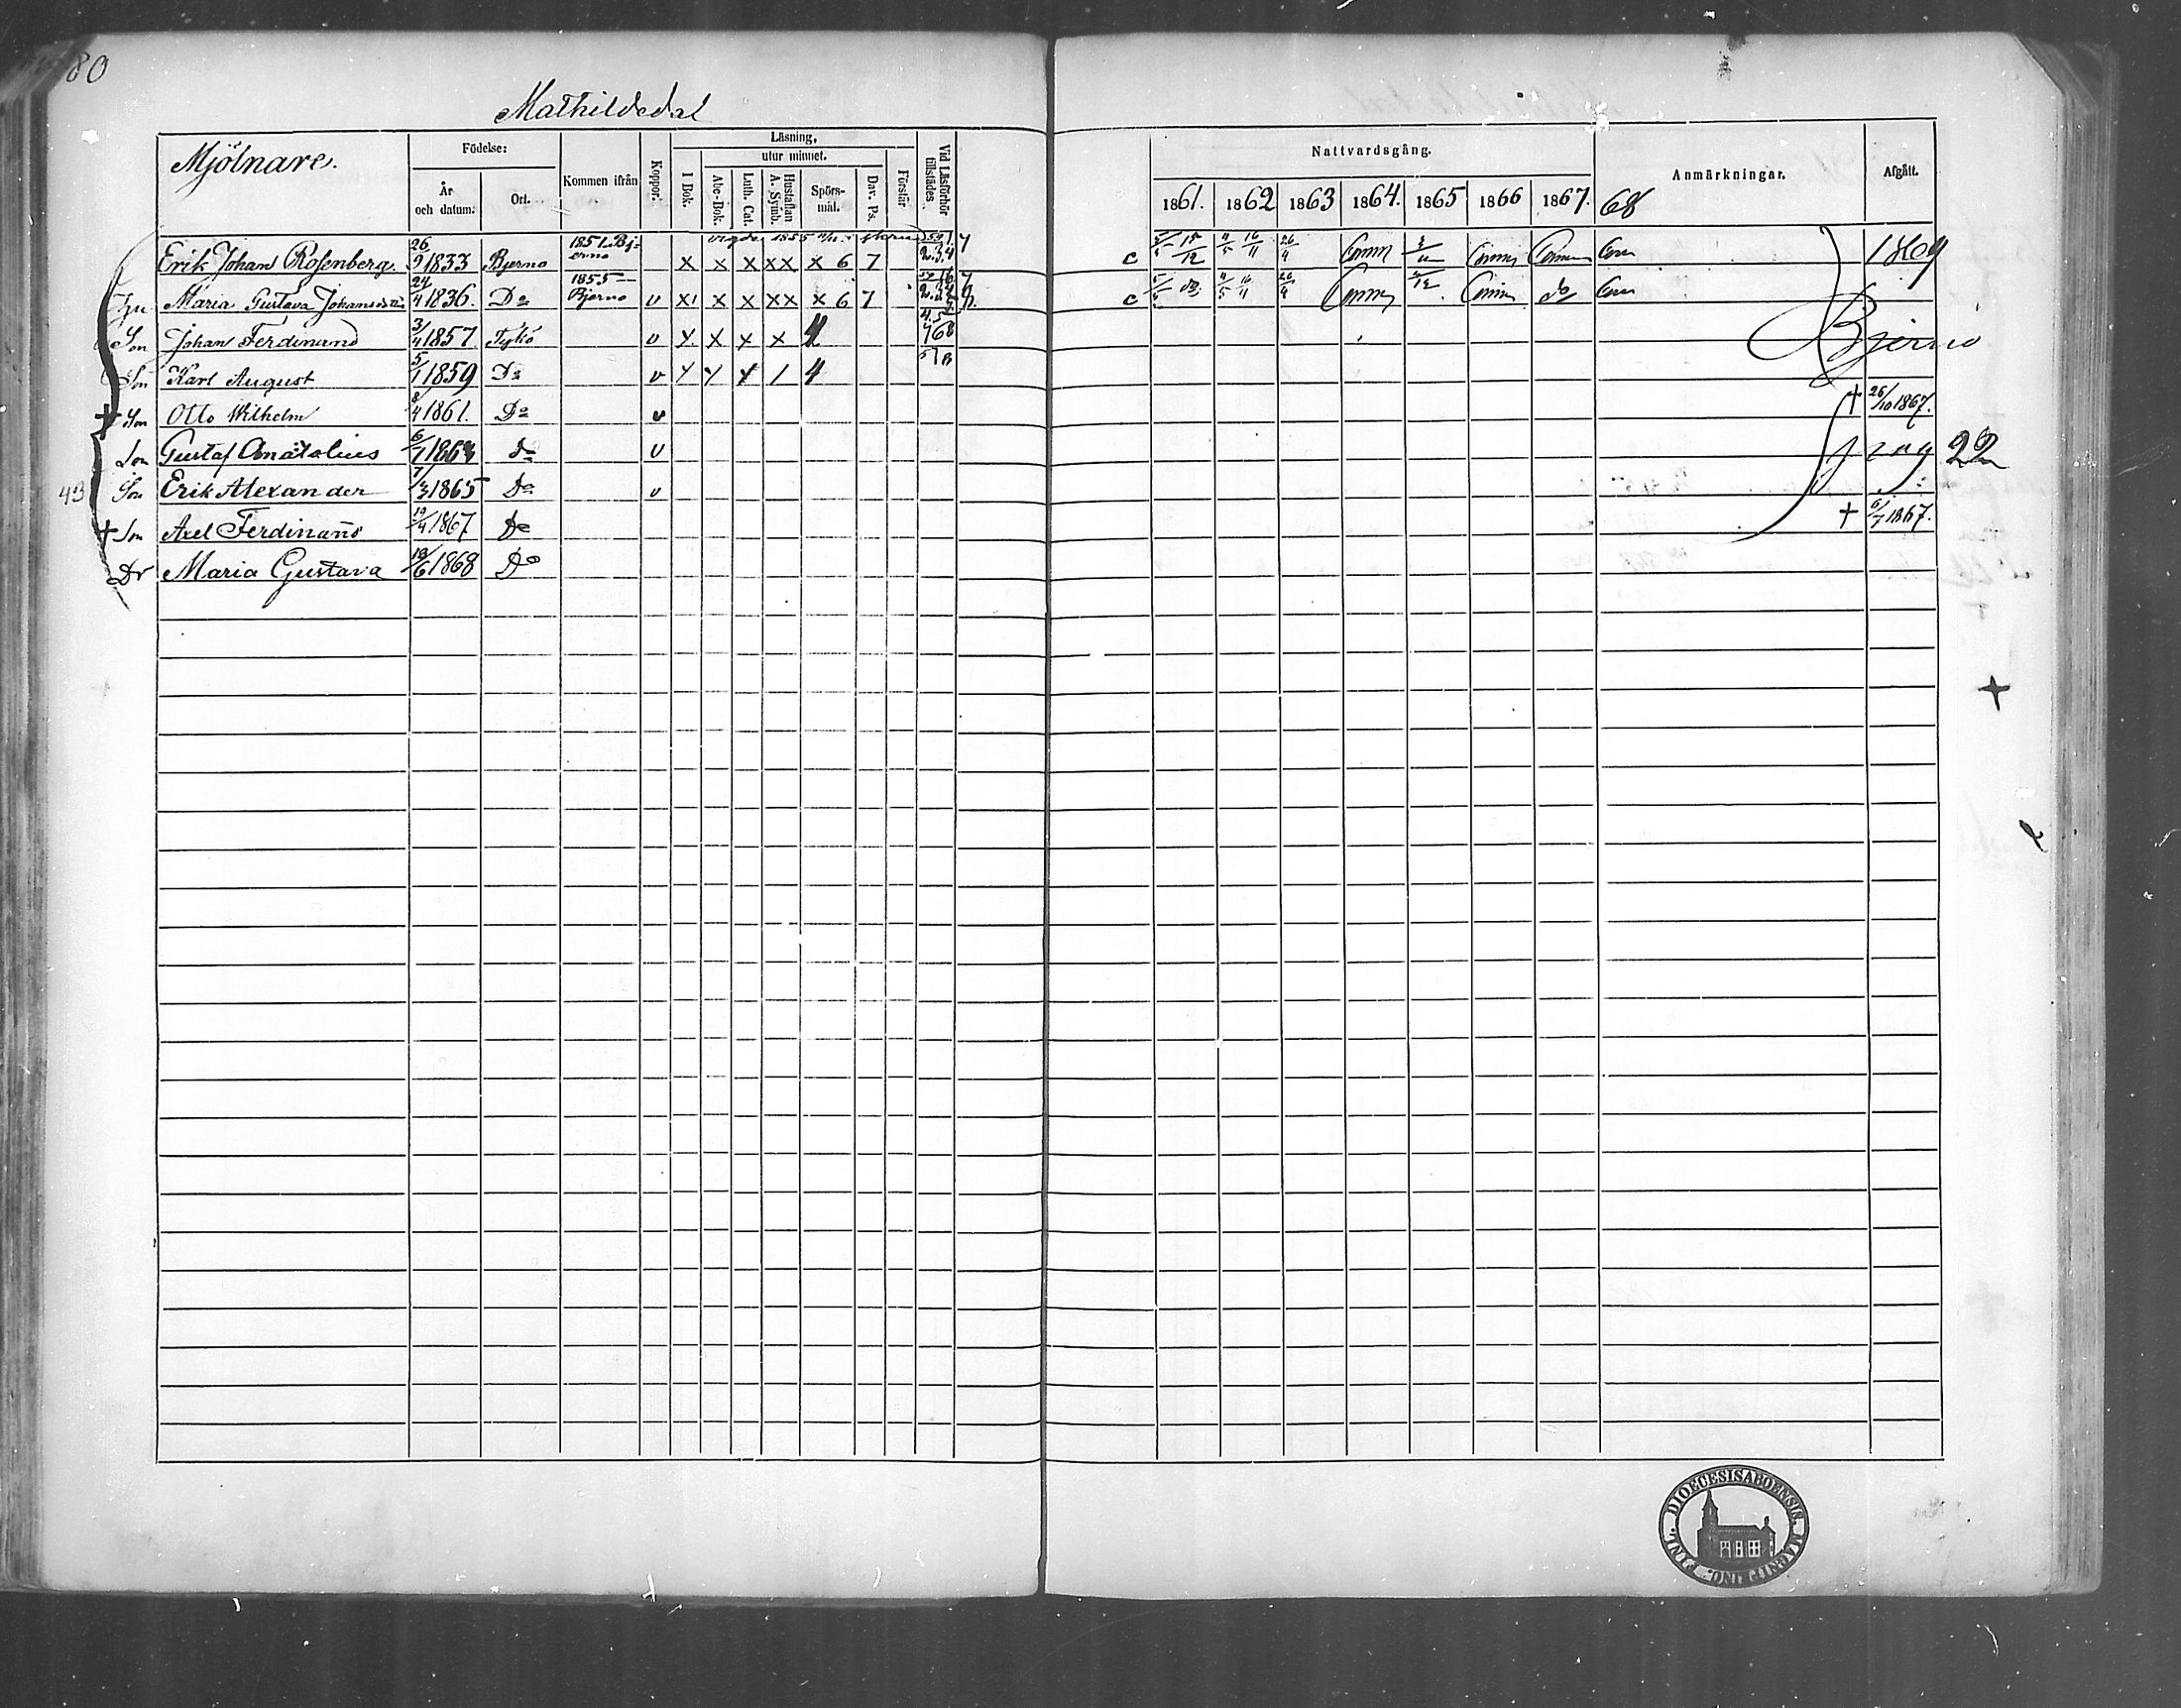 80
Mathildedal
Mjölnare.
Födelse:
År och datum.
Ort.
Kommen ifrån
Koppor.
Läsning,
utur minnet.
I Bok.
Abc-Bok.
Luth. Cat.
Hustaflan A. Symb.
Spörs-mål.
Dav. Ps.
Förstår
Vid Läsförhör tillstädes
Nattvardsgång.
1861. 1862 1863 1864. 1865 1866 1867. 68
Anmärkningar.
Afgått.
Erik Johan Rosenberg. 26/9 1833 Bjerno 1851 Bjerno x x x xx x 6 7 c Comm Comm Comm Com 1869
Maria Gustava 24/4 1836. Do 1855 Bjerno v x x x xx x 6 7 c Comm Comm do Com
Son Johan Ferdinand 3/4 1857. Tykö v x x x x 4 Bjerno
Son Karl August 5/1 1859 Do v 4
† Son Otto Wilhelm 8/4 1861. Do v † 26/10 1867.
Son Gustaf 6/7 Do v pag 22
43 Son Erik Alexander 7/3 1865 Do v
† Son Axel Ferdinand 19/4 1867 Do † 6/7 1867.
Dr Maria Gustava 19/6 1868 Do
DIOECESIS ABOENSIS.